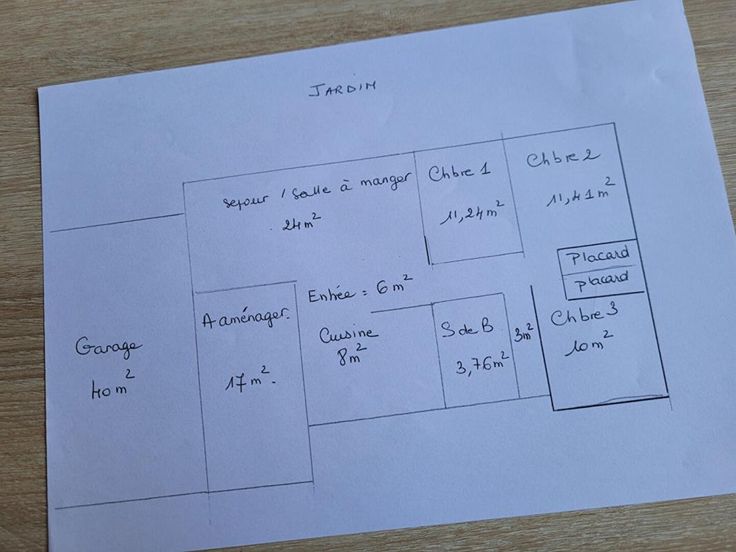 JARDIN
sejour / salle à manger
24m²
Chbre 1
11,24m²
Chbre 2
11,41m²
Placard
Placard
Entrée = 6m²
A aménager.
17m².
Garage
40m²
Cuisine
8m²
S de B
3,76m²
3m²
Chbre 3
10m²